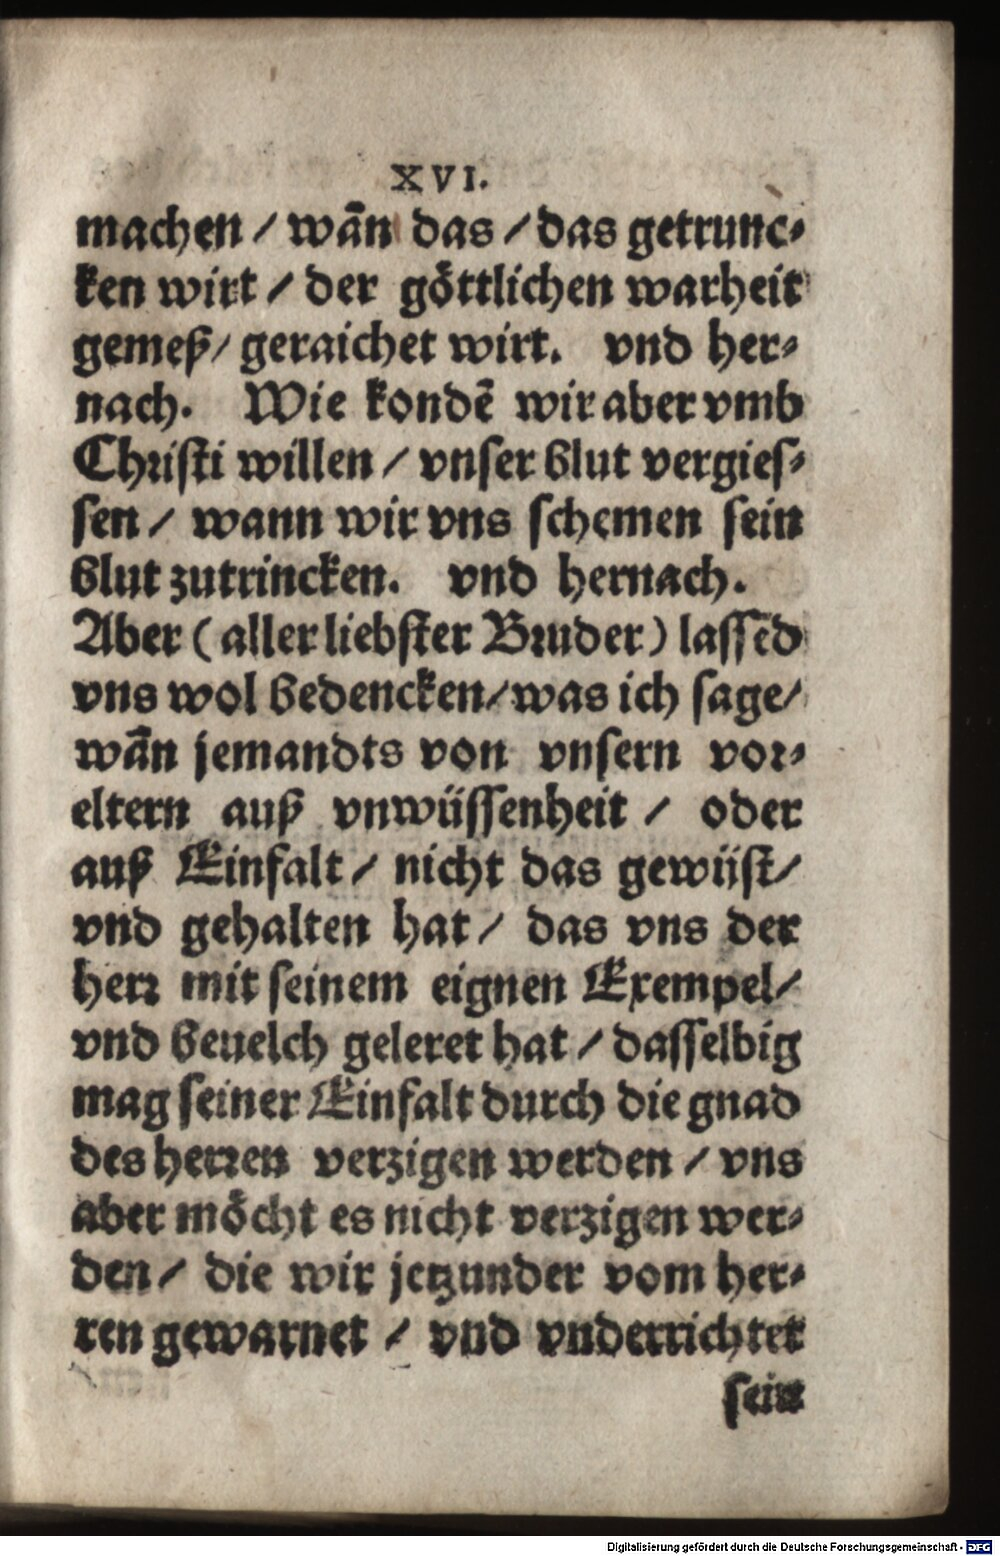 XVI.
machen / wañ das / das getrunc⸗
ken wirt / der göttlichen warheit
gemeß / geraichet wirt. vnd her⸗
nach. Wie kondē wir aber vmb
Christi willen / vnser blut vergies⸗
sen / wann wir vns schemen sein
blut zutrincken. vnd hernach.
Aber (aller liebster Bruder) lassēd
vns wol bedencken / was ich sage /
wañ jemandts von vnsern vor⸗
eltern auß vnwüssenheit / oder
auß Einfalt / nicht das gewüst /
vnd gehalten hat / das vns der
herr mit seinem eignen Exempel /
vnd beuelch geleret hat / dasselbig
mag seiner Einfalt durch die gnad
des herren verzigen werden / vns
aber möcht es nicht verzigen wer⸗
den / die wir jetzunder vom her⸗
ren gewarnet / vnd vnderrichtet
sein
Digitalisierung gefördert durch die Deutsche Forschungsgemeinschaft - DFG